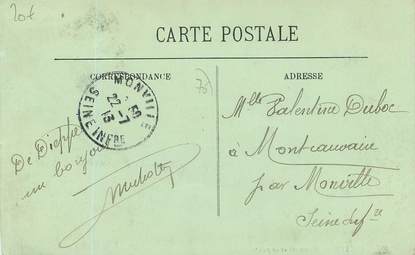 20f
CARTE POSTALE
CORRESPONDANCE
ADRESSE
MONVILLE
22 -7
13
SEINE INFRE
De Dieppe
un bonjour
Mlle Valentine Duboc
à Montcauvaire
par Monville
Seine Infre